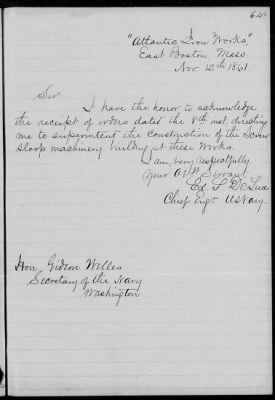 "Atlantic Iron Works"
East Boston, Mass.
Nov. 12th 1861.
Sir
I have the honor to acknowledge
the receipt of orders dated the 8th inst, directing
me to superintend the construction of the Screw
Sloop machinery building at these Works.
I am, very respectfully
Your Obt Servant
Ed. S. De Luce
Chief Engr U.S. Navy.
Hon. Gideon Welles
Secretary of the Navy
Washington